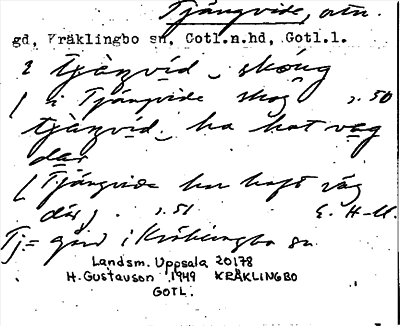 Tjängvide, otn.
gd, Kräklingbo sn, Gotl.n.hd, Gotl.l.
i tjängvid skoug
( i Tjängvide skog s. 50
tjängvid ha hat väg
där
( Tjängvide har haft väg
där) . s. 51 E. H-M.
Tj = gård i Kräklingbo sn
Landsm. Uppsala 20178
H. Gustavson 1949 KRÄKLINGBO
GOTL.